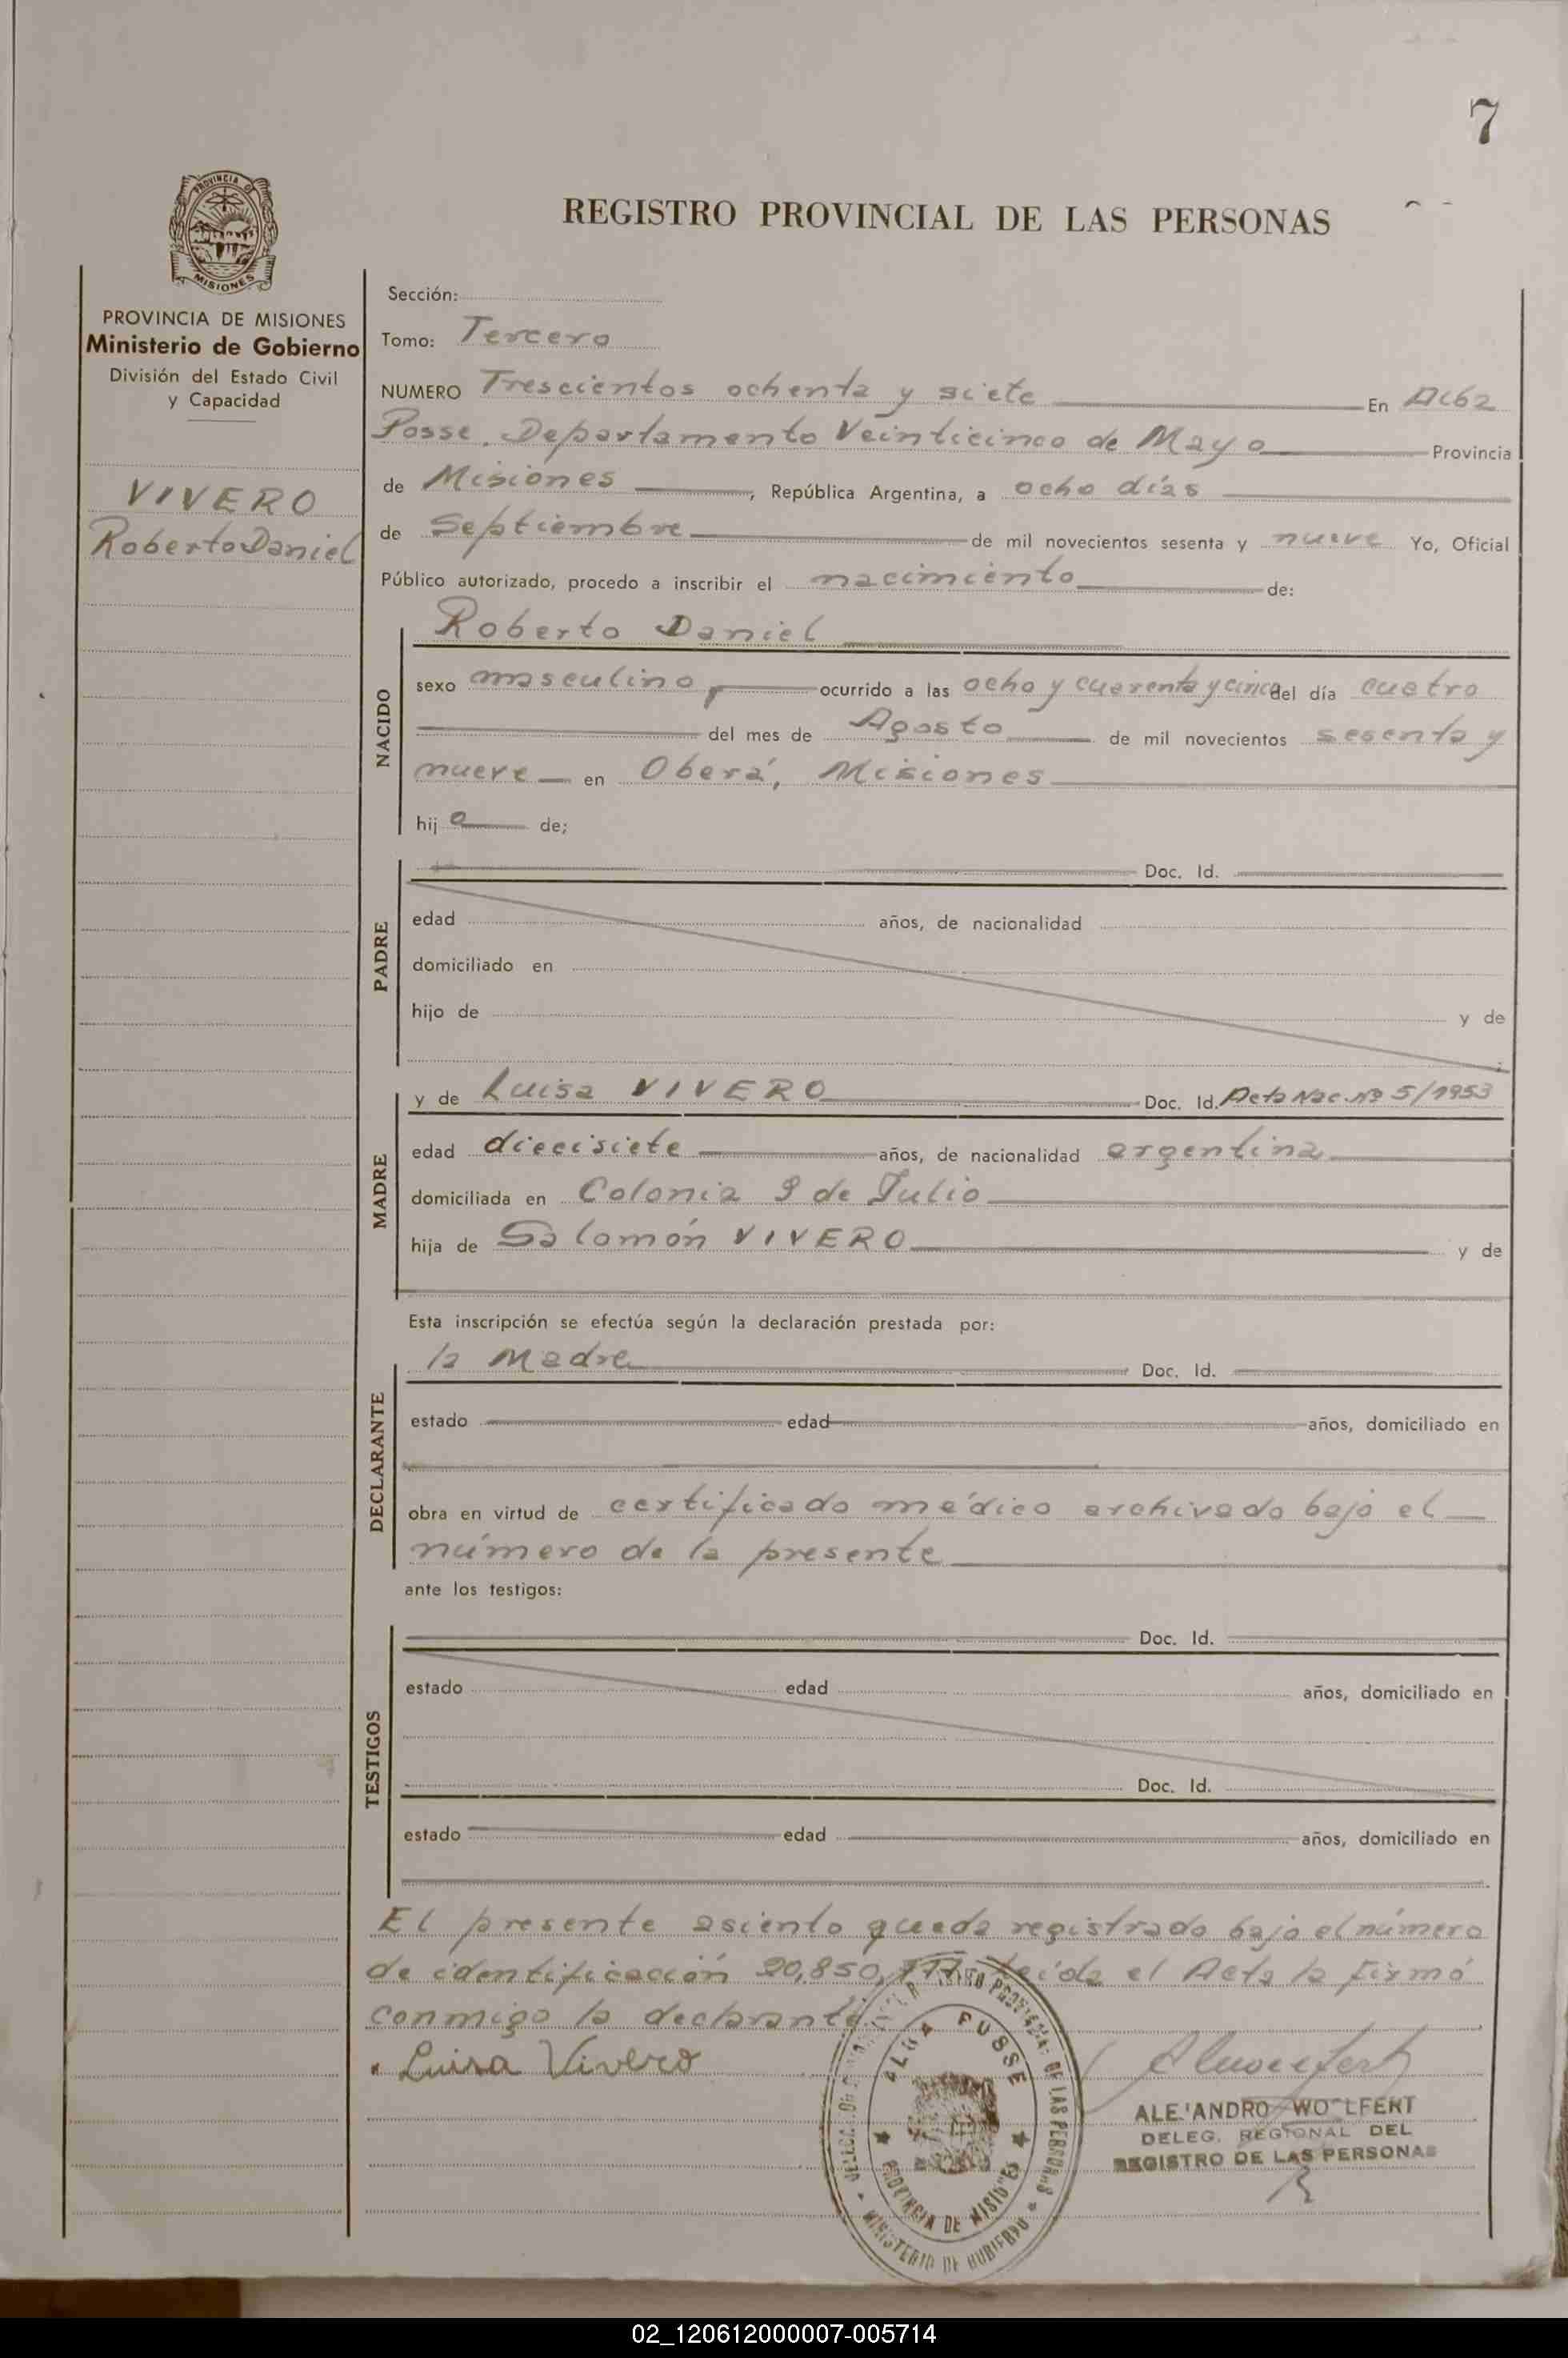 7
PROVINCIA DE
MISIONES
REGISTRO PROVINCIAL DE LAS PERSONAS
PROVINCIA DE MISIONES
Ministerio de Gobierno
División del Estado Civil
y Capacidad
VIVERO
Roberto Daniel
Sección:
Tomo: Tercero
NUMERO Trescientos ochenta y siete En Alba
Posse, Departamento Veinticinco de Mayo Provincia
de Misiones, República Argentina, a ocho días
de Septiembre de mil novecientos sesenta y nueve Yo, Oficial
Público autorizado, procedo a inscribir el nacimiento de:
NACIDO
Roberto Daniel
sexo masculino, ocurrido a las ocho y cuarenta y cinco del día cuatro
del mes de Agosto de mil novecientos sesenta y
nueve en Oberá, Misiones
hijo de;
PADRE
Doc. Id.
edad años, de nacionalidad
domiciliado en
hijo de y de
MADRE
y de Luisa VIVERO Doc. Id. Acta Nac. Nº 5/1953
edad diecisiete años, de nacionalidad argentina
domiciliada en Colonia 9 de Julio
hija de Salomón VIVERO y de
Esta inscripción se efectúa según la declaración prestada por:
DECLARANTE
la Madre Doc. Id.
estado edad años, domiciliado en
obra en virtud de certificado médico archivado bajo el
número de la presente
ante los testigos:
TESTIGOS
Doc. Id.
estado edad años, domiciliado en
Doc. Id.
estado edad años, domiciliado en
El presente asiento queda registrado bajo el número
de identificación Leída el Acta la firmó
conmigo la declarante.-
Luisa Vivero
PROVINCIA DE MISIONES
MINISTERIO DE GOBIERNO
ALEJANDRO WOLFERT
DELEG. REGIONAL DEL
REGISTRO DE LAS PERSONAS
02_120612000007-005714